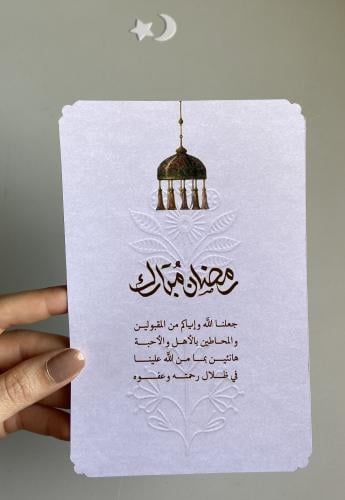 رمضان مُبارك
جعلنا اللّٰه وإياكم من المقبولين
والمحاطين بالأهل والأحبة
هانئين بما منّ اللّٰه علينا
في ظلال رحمته وعفوه